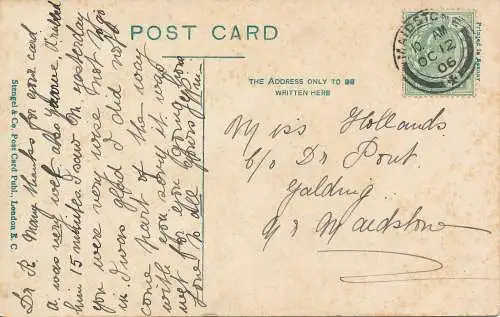 POST CARD
MAIDSTONE
10 AM
OC 12
06
Printed in Saxony
THE ADDRESS ONLY TO BE
WRITTEN HERE
Stengel & Co., Post Card Publ., London E. C.
Dr R Many thanks for your card
a. was very wet also
him 15 minutes I saw on yesterday
you were very wise not to go
in. I was glad I did not
come part of the way
with you sorry it was
wet for you going home
love to all
Miss Hollands
c/o Dr Pout
Yalding
Nr Maidstone